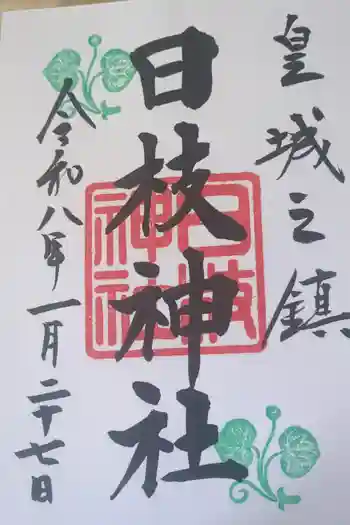 皇城之鎮
日枝神社
令和八年一月二十七日
日枝神社